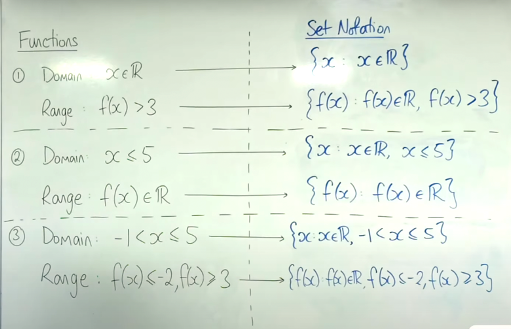 Functions
Set Notation
① Domain x∈ℝ → {x : x∈ℝ}
Range : f(x) > 3 → {f(x) : f(x)∈ℝ, f(x) > 3}
② Domain: x ≤ 5 → {x : x∈ℝ, x ≤ 5}
Range : f(x) ∈ ℝ → {f(x) : f(x) ∈ ℝ}
③ Domain: -1 < x ≤ 5 → {x : x∈ℝ, -1 < x ≤ 5}
Range : f(x) ≤ -2, f(x) ≥ 3 → {f(x) : f(x)∈ℝ, f(x) ≤ -2, f(x) ≥ 3}